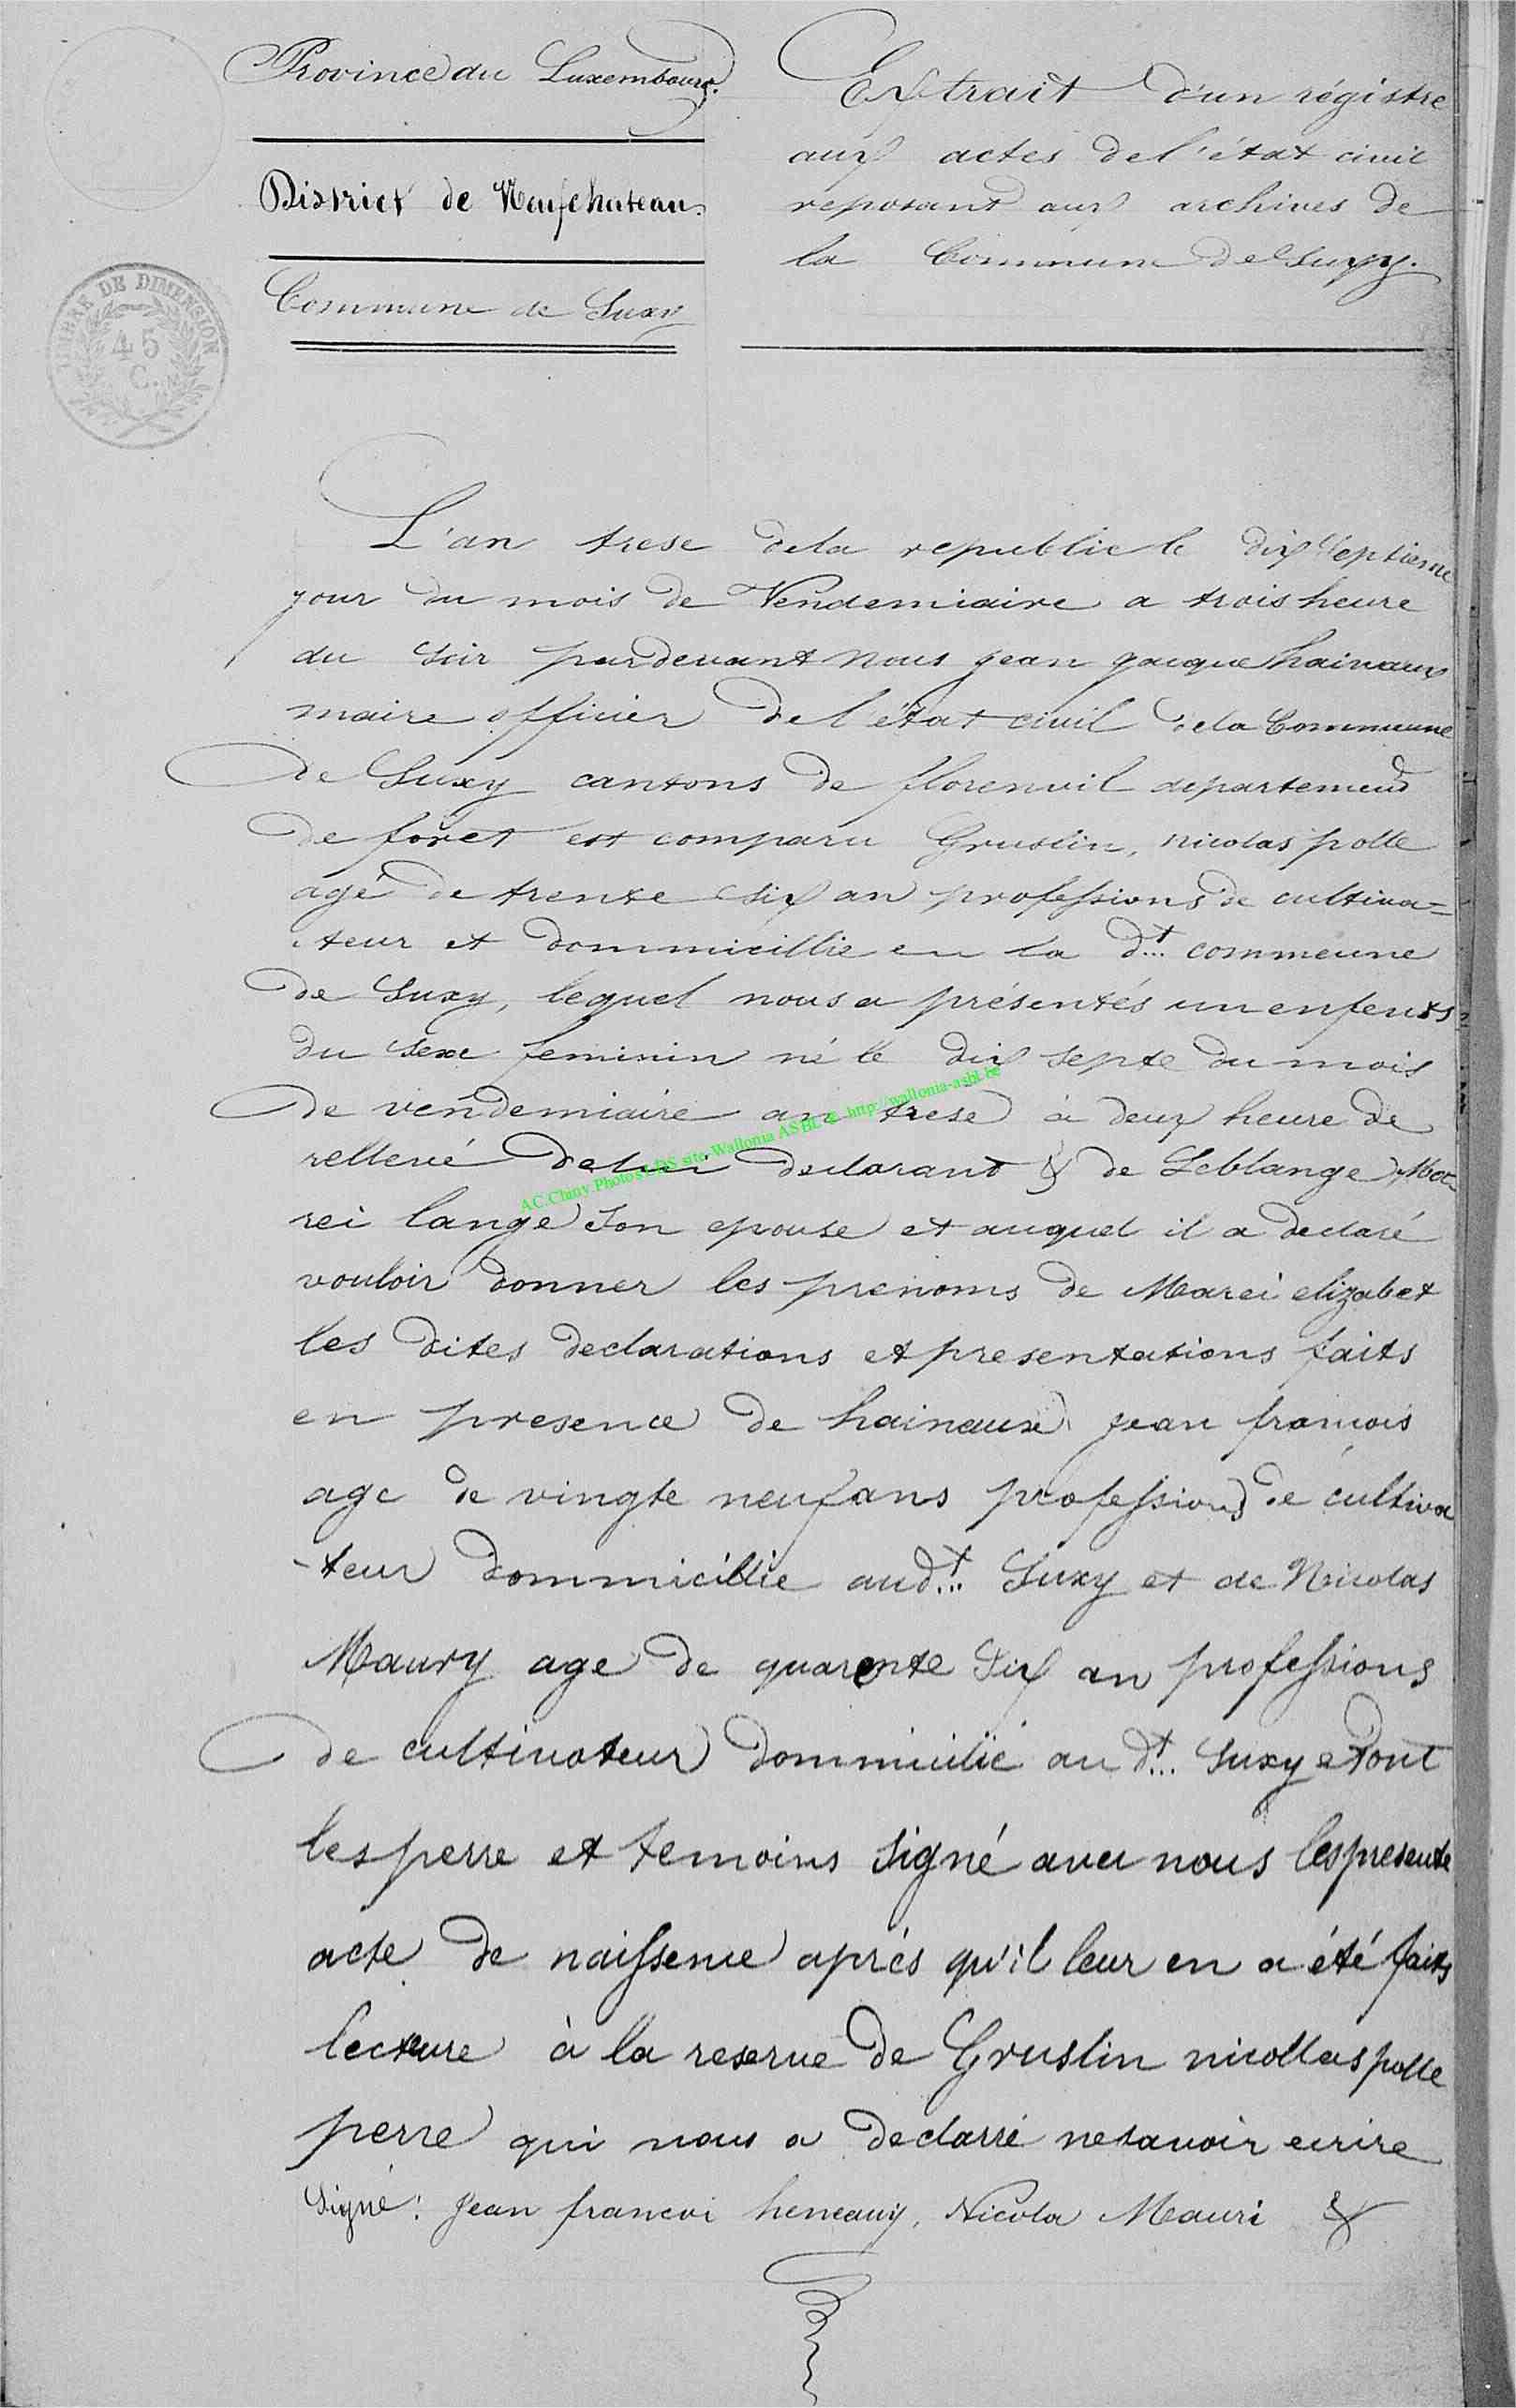 Province du Luxembourg.
District de Neufchateau.
Commune de Suxy
TIMBRE DE DIMENSION
45
C.
Extrait d'un régistre
aux actes de l'état civil
reposant aux archives de
la Commune de Suxy.
L'an trese dela republic le dix septieme
jour du mois de Vendemiaire a trois heure
du soir pardevant nous jean jacque hainaux
maire officier de l'état civil dela Commeune
de Suxy cantons de florenvil departement
de forêt est comparu Gruslin, nicolas polle
agé de trente six an professions de cultiva=
teur et dommicillie en la dt... commeune
de Suxy, lequel nous a présentés un enfents
du sexe feminin né le dix septe du mois
de vendemiaire an trese à deux heure de
rellevé de lui declarant & de Leblange Ma-
rei lange son epouse et auquel il a declaré
vouloir donner les prenoms de Marei elizabet
les dites declarations et presentations faits
en presence de hainaux jean francois
age de vingte neuf ans professions de cultiva
-teur dommicillie aud.t... Suxy et de Nicolas
Maury age de quarente six an professions
de cultivateur dommicilié au dt... Suxy et ont
les perre et temoins signé avec nous les presente
acte de naissence aprés qu'il leur en a été faits
lecteure à la reserve de Gruslin nicollas polle
perre qui nous a declarré ne savoir ecrire
Signé: Jean francoi heneaux, Nicola Mauri &
AC.Chiny.Photos LDS site-Wallonia ASBL & http://wallonia-asbl.be